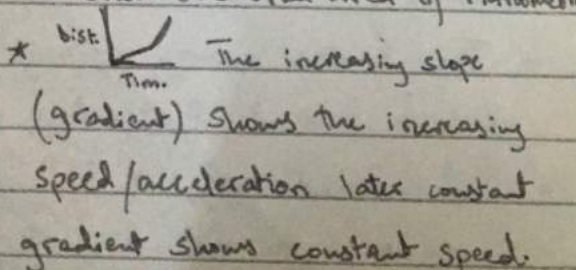 * Dist. Time. The increasing slope
(gradient) shows the increasing
speed/acceleration later constant
gradient shows constant speed.